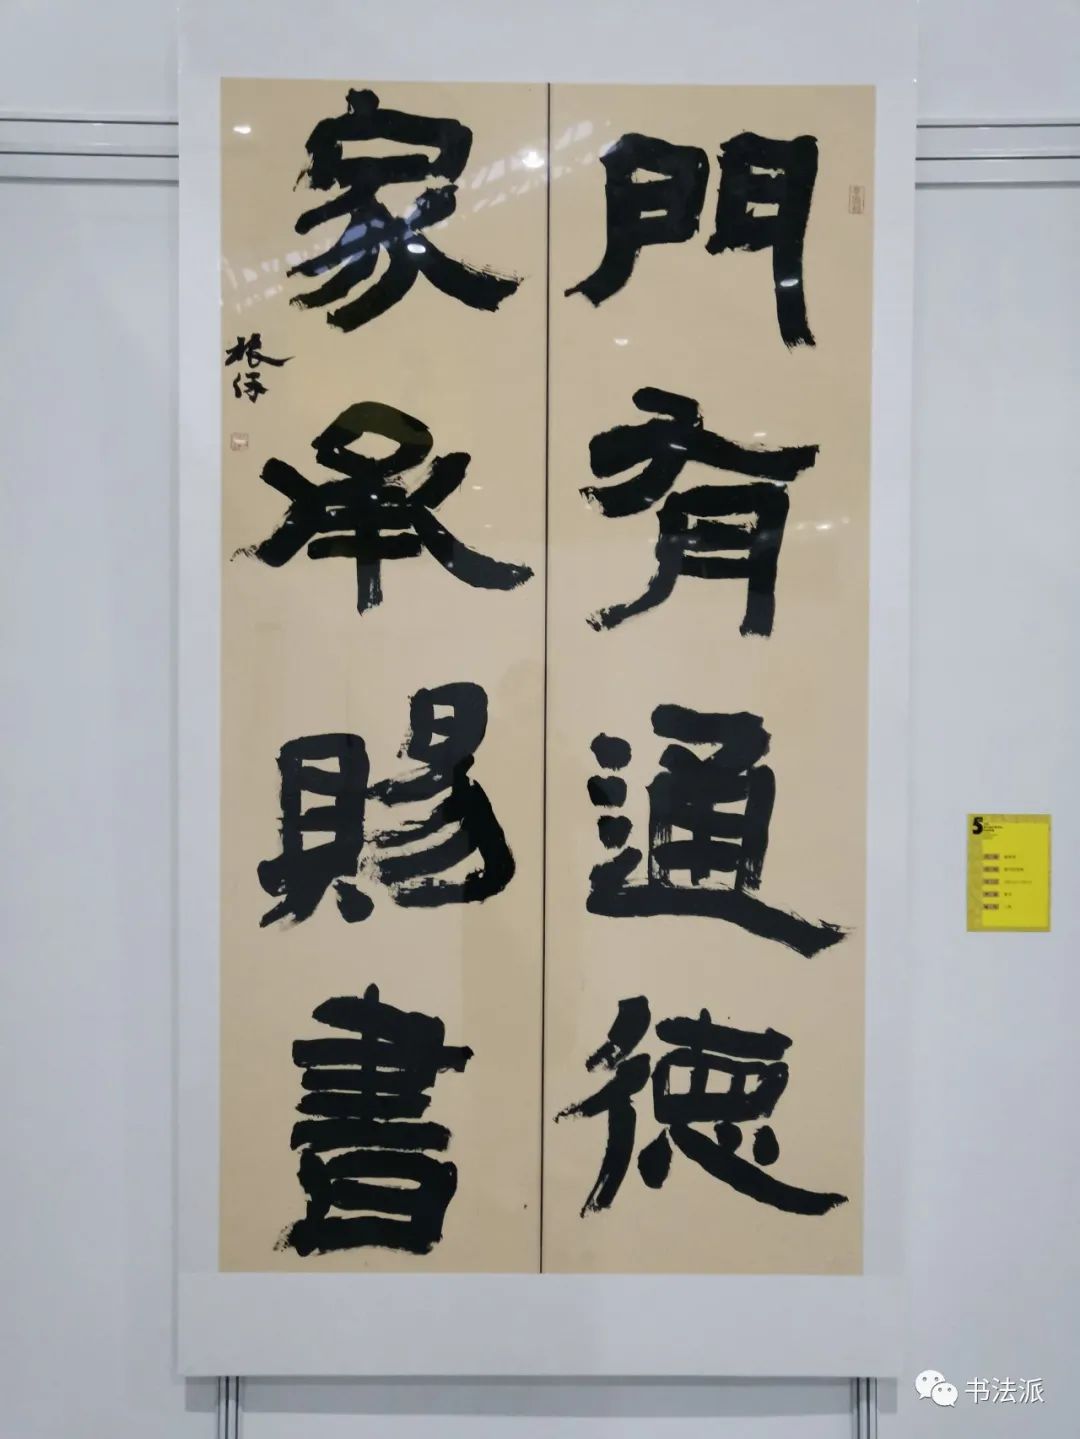 門有通德
家承賜書
5
书法派